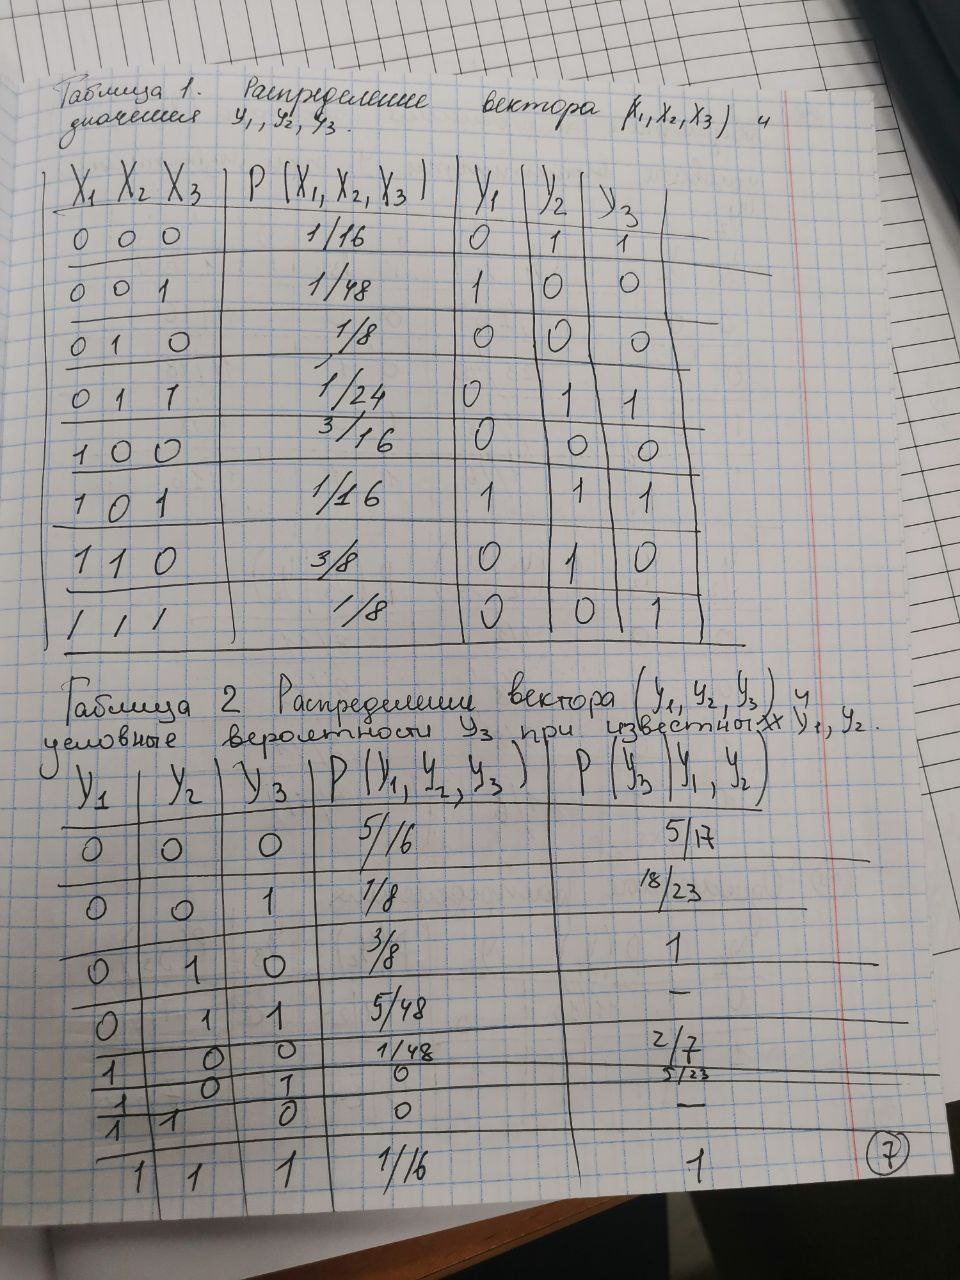 Таблица 1. Распределение вектора (X1, X2, X3) и
значения y1, y2, y3.
X1 X2 X3 P(X1, X2, X3) y1 y2 y3
0 0 0 1/16 0 1 1
0 0 1 1/48 1 0 0
0 1 0 1/8 0 0 0
0 1 1 1/24 0 1 1
1 0 0 3/16 0 0 0
1 0 1 1/16 1 1 1
1 1 0 3/8 0 1 0
1 1 1 1/8 0 0 1
Таблица 2 Распределении вектора (y1, y2, y3) и
условные вероятности y3 при известных y1, y2.
y1 y2 y3 P(y1, y2, y3) P(y3|y1, y2)
0 0 0 5/16 5/17
0 0 1 1/8 18/23
0 1 0 3/8 1
0 1 1 5/48 —
1 0 0 1/48 2/7
1 0 1 0 5/23
1 1 0 0 —
1 1 1 1/16 1
7